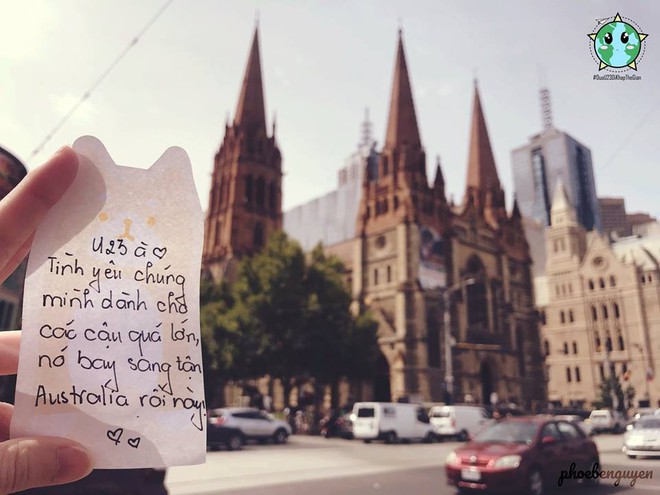 #DuaU23DiKhapTheGian
U23 à ♡
Tình yêu chúng
mình dành cho
các cậu quá lớn,
nó bay sang tận
Australia rồi này!
♡ ♡
phoebenguyen